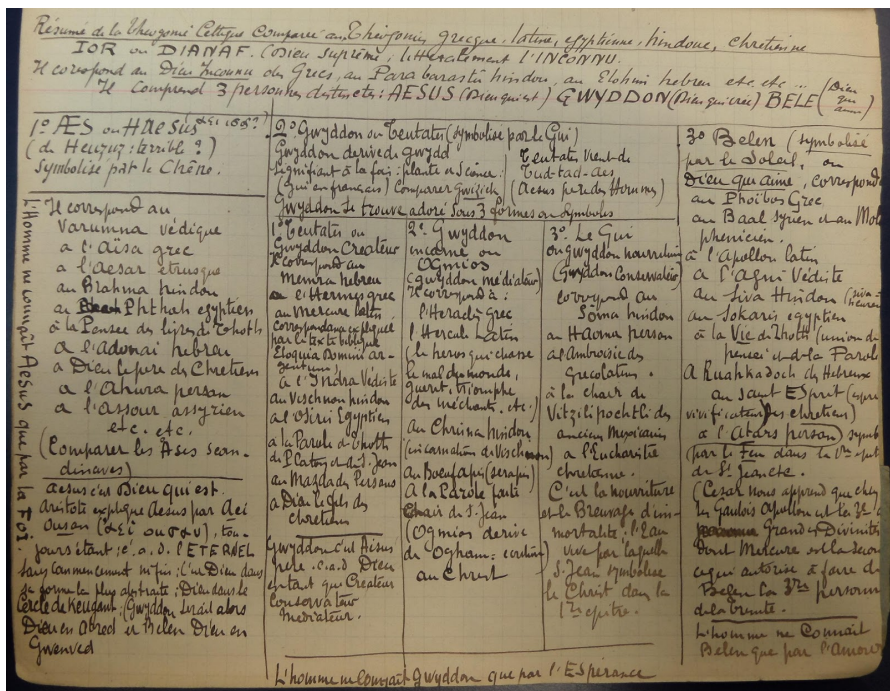 Résumé de la Théogonie Celtique Comparée aux Théogonies grecque, latine, egyptienne, hindoue, chretienne
IOR ou DIANAF. (Dieu suprême, litteralement l'INCONNU.
Il correspond au Dieu Inconnu des Grecs, au Parabarastu hindou, au Elohim hebreu etc. etc...
Il comprend 3 personnes distinctes: AESUS (Dieu qui est) GWYDDON (Dieu qui crée) BELE (Dieu qui aime)
1º ÆS ou HAesus
(de Heuzuz: terrible?)
Symbolisé par le Chêne.
L'Homme ne connaît AESUS que par la FOI.
Il correspond au
Varumna védique
à l'Aïsa grec
à l'Aesar étrusque
au Brahma hindou
au Phthah egyptien
à la Pensée des livres d'Thoth
à l'Adonaï hebreu
à Dieu le père des Chretiens
à l'Ahura persan
à l'Assour assyrien
etc. etc.
(Comparer les Ases scan-
dinaves)
Aesus c'est Dieu qui est.
Aristote explique Aesus par Aei
ouson (αει ουσαν), tou-
jours étant; c.a.d. l'ETERNEL
sans commencement ni fin; c'est Dieu dans
sa forme la plus abstraite; Dieu dans le
Cercle de Keugant; (Gwyddon serait alors
Dieu en Abred et Belen Dieu en
Gwenved
2º Gwyddon ou Teutatès (symbolisé par le Gui)
Gwyddon derive de gwydd
signifiant à la fois: plante et Science:
(Gui en français) Comparer Gwizick
Teutatès vient de
Tud-tad-aes
(Aesus père des Hommes)
Gwyddon se trouve adoré sous 3 formes ou Symboles
1º Teutatès ou
Gwyddon Createur
Il correspond au
Memra hebreu
à l'Hermes grec
au Mercure latin
correspondance expliquée
par le texte biblique
Eloquia Domini ar-
gentum;
à l'Indra Védiste
au Vischnou hindou
à l'Osiris Egyptien
à la Parole d'Thoth
de Platon et de S. Jean
au Mazda des Persans
à Dieu le fils des
chretiens
Gwyddon c'est Aesus
c.a.d Dieu
en tant que Createur
Conservateur
Mediateur.
2º. Gwyddon
incarné ou
OGMIOS
(Gwyddon médiateur)
Il correspond à:
l'Heraclès Grec
l'Hercule Latin
(le heros qui chasse
le mal du monde,
guerrit, triomphe
des méchants, etc.)
au Chrisna hindou
(incarnation de Vischnou)
au Boeuf apis (serapis)
A la Parole faite
Chair de St Jean
(Ogmios derive
de Ogham: ecriture)
au Christ
3º. Le Gui
ou Gwyddon nourricier
(Gwyddon Conservateur)
correspond au
Sôma hindou
au Haoma persan
à l'Ambroisie des
Grecolatins.
à la chair de
Vitzilipochtli des
anciens Mexicains
à l'Eucharistie
chretienne.
C'est la nourriture
et le Breuvage d'im-
mortalité: l'Eau
vive par laquelle
S. Jean symbolise
le Christ dans la
1re epitre.
L'homme ne connait Gwyddon que par l'Espérance
3º Belen (symbolisé
par le Soleil, ou
Dieu qui aime, correspond
au Phoïbos Grec
au Baal syrien et au Mol
phenicien.
à l'Apollon latin
à l'Agni Védiste
au Siva Hindou
au Sokaris egyptien
à la Vie de Thoth (union de
pensée et de la Parole
A Ruahkadoch des Hebreux
au Saint ESprit (esprit
vivificateur des chretiens)
à l'Atars persan) symb
par le Feu dans la 1re epit
de St Jean etc.
(Cesar nous apprend que chez
les Gaulois Apollon est la 3e
Grandes Divinités
dont Mercure est la secon
ce qui autorise à faire de
Belen la 3me personne
de la trinité.
L'homme ne Connait
Belen que par l'Amour